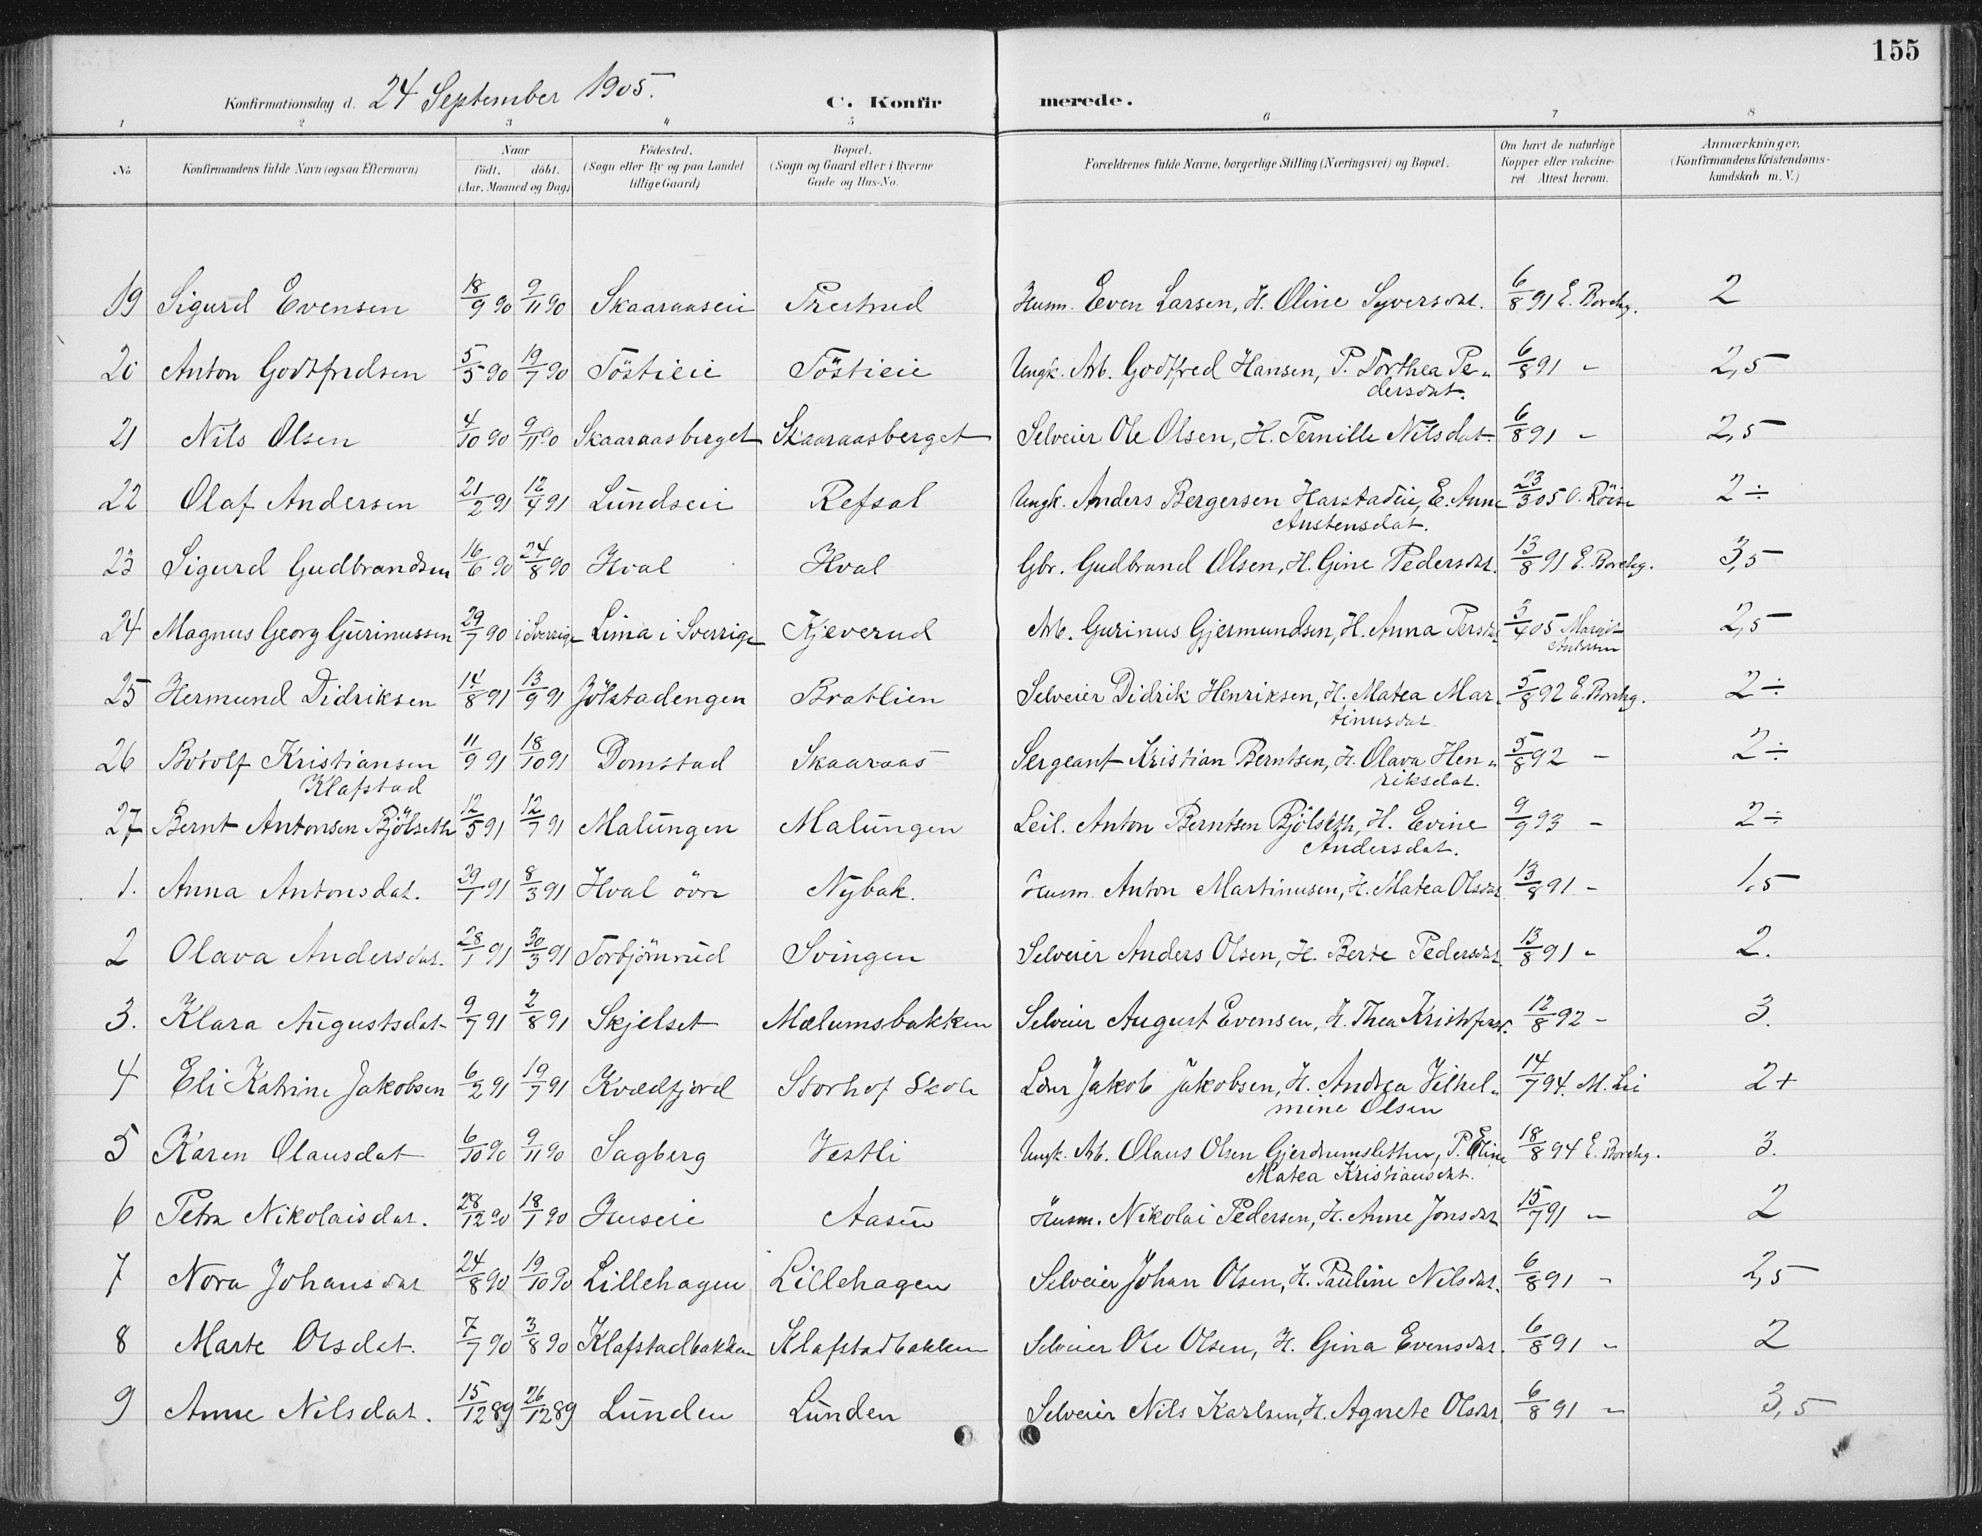 155
Konfirmationsdag d. 24 September 1905.
C. Konfirmerede.
1 2 3 4 5 6 7 8
No
Konfirmandens fulde Navn (ogsaa Efternavn)
Naar
födt. döbt.
(Aar, Maaned og Dag)
Födested.
(Sogn eller By og paa Landet
tillige Gaard)
Bopæl.
(Sogn og Gaard eller i Byerne
Gade og Hus-No.
Forældrenes fulde Navne, borgerlige Stilling (Næringsvei) og Bopæl.
Om havt de naturlige
Kopper eller vakcine-
ret. Attest herom.
Anmærkninger.
(Konfirmandens Kristendoms-
kundskab m. V.)
19 Sigurd Evensen 18/9 90 9/11 90 Skaaraaseie Prestrud Husm. Even Larsen, H. Oline Syversdat. 6/8 91 E. Borchg. 2
20 Anton Godtfredsen 5/5 90 19/7 90 Töstieie Töstieie Ungk. Arb. Godtfred Hansen, P. Dorthea Pe- 6/8 91 - 2,5
dersdat.
21 Nils Olsen 4/10 90 9/11 90 Skaaraasberget Skaaraasberget Selveier Ole Olsen, H. Pernille Nilsdat. 6/8 91 - 2,5
22 Olaf Andersen 21/2 91 12/4 91 Lundseie Refsal Ungk. Anders Bergersen Harstadeie, E. Anne 23/3 05 O. Röise 2÷
Austensdat.
23 Sigurd Gudbrandsen 16/6 90 24/8 90 Hval Hval Gbr. Gudbrand Olsen, H. Gine Pedersdat. 13/8 91 E. Borchg. 3,5
24 Magnus Georg Gurinussen 29/7 90 i Sverrige Lima i Sverrige Kjeverud Arb. Gurinus Gjermundsen, H. Anna Persdat 3/4 05 Margit 2,5
Andersen
25 Hermund Didriksen 14/8 91 13/9 91 Jölstadengen Bratlien Selveier Didrik Henriksen, H. Matea Mar- 5/8 92 E. Borchg. 2÷
tinusdat.
26 Botolf Kristiansen 11/9 91 18/10 91 Domstad Skaaraas Sergeant Kristian Berntsen, H. Olava Hen- 5/8 92 - 2÷
Klafstad riksdat.
27 Bernt Antonsen Bjölseth 12/5 91 12/7 91 Malungen Malungen Leil. Anton Berntsen Bjölseth, H. Evine 9/9 93 - 2÷
Andersdat.
1. Anna Antonsdat. 29/1 91 8/3 91 Hval övre Nybak. Husm. Anton Martinusen, H. Matea Olsdat 13/8 91 - 1,5
2 Olava Andersdat. 28/1 91 30/3 91 Torbjörnrud Svingen Selveier Anders Olsen, H. Berte Pedersdat 13/8 91 - 2.
3. Klara Augustsdat. 9/7 91 2/8 91 Skjelset Mælumsbakken Selveier August Evensen, H. Thea Kristofersd. 12/8 92 - 3.
4 Eli Katrine Jakobsen 6/2 91 19/7 91 Kvædfjord Storhof Skole Lærer Jakob Jakobsen, H. Andrea Vilhel- 14/7 94. M. Lie 2+
mine Olsen
5 Karen Olausdat 6/10 90 9/11 90 Sagberg Vestli Ungk. Arb. Olaus Olsen Gjerdrumsletten, P. Eline 18/8 94 E. Borchg. 3.
Matea Kristiansdat.
6 Petra Nikolaisdat. 28/12 90 18/1 90 Huseie Aasen Husm. Nikolai Pedersen, H. Anne Jonsdat 15/7 91 - 2
7 Nora Johansdat 24/8 90 19/10 90 Lillehagen Lillehagen Selveier Johan Olsen, H. Pauline Nilsdat. 6/8 91 - 2,5
8 Marte Olsdat. 7/7 90 3/8 90 Klafstadbakken Klafstadbakken Selveier Ole Olsen, H. Gina Evensdat. 6/8 91 - 2
9 Anne Nilsdat. 15/12 89 26/12 89 Lunden Lunden Selveier Nils Karlsen, H. Agnete Olsdat. 6/8 91 - 3,5